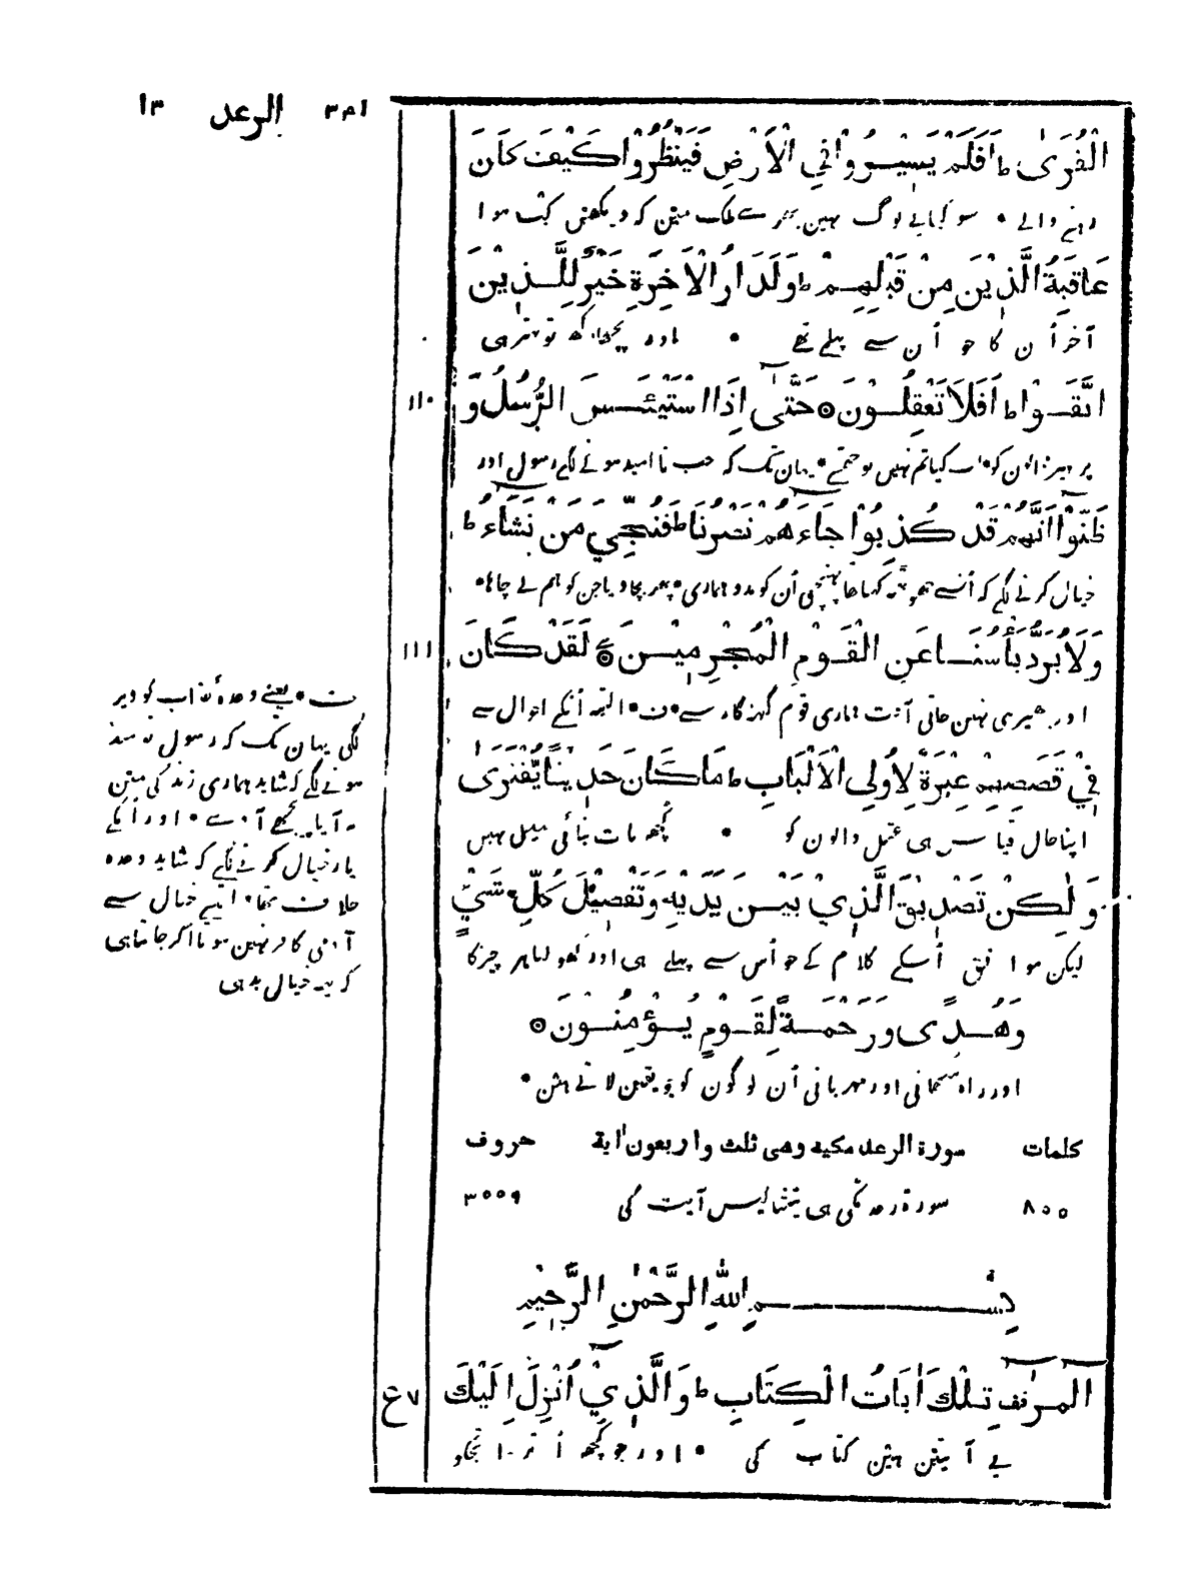 الرعد ١٣
الْقُرٰى ط اَفَلَمْ يَسِيْرُوْا فِي الْاَرْضِ فَيَنْظُرُوْا كَيْفَ كَانَ
رہنے والے • سو کیا یے لوگ نہین پھرے ملک مین کہ دیکھین کیسا ہوا
عَاقِبَةُ الَّذِيْنَ مِنْ قَبْلِهِمْ ط وَلَدَارُ الْاٰخِرَةِ خَيْرٌ لِّلَّذِيْنَ
آخر اُن کا جو اُن سے پہلے تھے • اور پچھلا گھر تو بہتر ہی
١١٠
اتَّقَوْا ط اَفَلَا تَعْقِلُوْنَ ⊙ حَتّٰٓى اِذَا اسْتَيْئَسَ الرُّسُلُ وَ
پرہیز والون کو • اب کیا تم نہین بوجھتے • یہان تک کہ جب نا امید ہونے لگے رسول اور
ظَنُّوْٓا اَنَّهُمْ قَدْ كُذِبُوْا جَآءَهُمْ نَصْرُنَا ط فَنُجِّيَ مَنْ نَشَآءُ ط
خیال کرنے لگے کہ اُنسے جھوٹھہ کہا تھا پہنچی اُن کو مدد ہماری • پھر بچا دیا جن کو ہم نے چاہا •
١١١
وَلَا يُرَدُّ بَأْسُنَا عَنِ الْقَوْمِ الْمُجْرِمِيْنَ ⊙ لَقَدْ كَانَ
اور پھیری نہین جاتی آفت ہماری قوم گنہگار سے • ف • البتہ اُنکے احوال سے
فِيْ قَصَصِهِمْ عِبْرَةٌ لِّاُولِي الْاَلْبَابِ ط مَا كَانَ حَدِيْثًا يُّفْتَرٰى
اپنا حال قیاس ہی عقل والون کو • کچھ بات بنائی ہوئی نہین
وَلٰكِنْ تَصْدِيْقَ الَّذِيْ بَيْنَ يَدَيْهِ وَتَفْصِيْلَ كُلِّ شَيْءٍ
لیکن موافق اُسکے کلام کے جو اُس سے پہلے ہی اور کھولنا ہر چیز کا
وَّهُدًى وَّرَحْمَةً لِّقَوْمٍ يُّؤْمِنُوْنَ ⊙
اور راہ سمجھانی اور مہربانی اُن لوگون کو جو یقین لاتے ہین •
ف • یعنے وعدۂ عذاب کو دیر
لگی یہان تک کہ رسول نا امید
ہونے لگے کہ شاید ہماری زندگی مین
نہ آیا پیچھے آوے • اور اُنکے
یار خیال کرنے لگے کہ شاید وعدہ
خلاف تھا • ایسے خیال سے
آدمی کافر نہین ہوتا اگر جانتا ہی
کہ یہہ خیال بد ہی
كلمات سورة الرعد مكية وهي ثلث واربعون اٰية حروف
٨٥٥ سورۃ رعد مکی ہی تینتالیس آیت کی ٣٥٠٩
بِسْمِ اللّٰهِ الرَّحْمٰنِ الرَّحِيْمِ
الٓمّٓرٰ قف تِلْكَ اٰيَاتُ الْكِتَابِ ط وَالَّذِيْٓ اُنْزِلَ اِلَيْكَ
٧ ع
یے آیتین ہین کتاب کی • اور جو کچھ اُترا تجکو